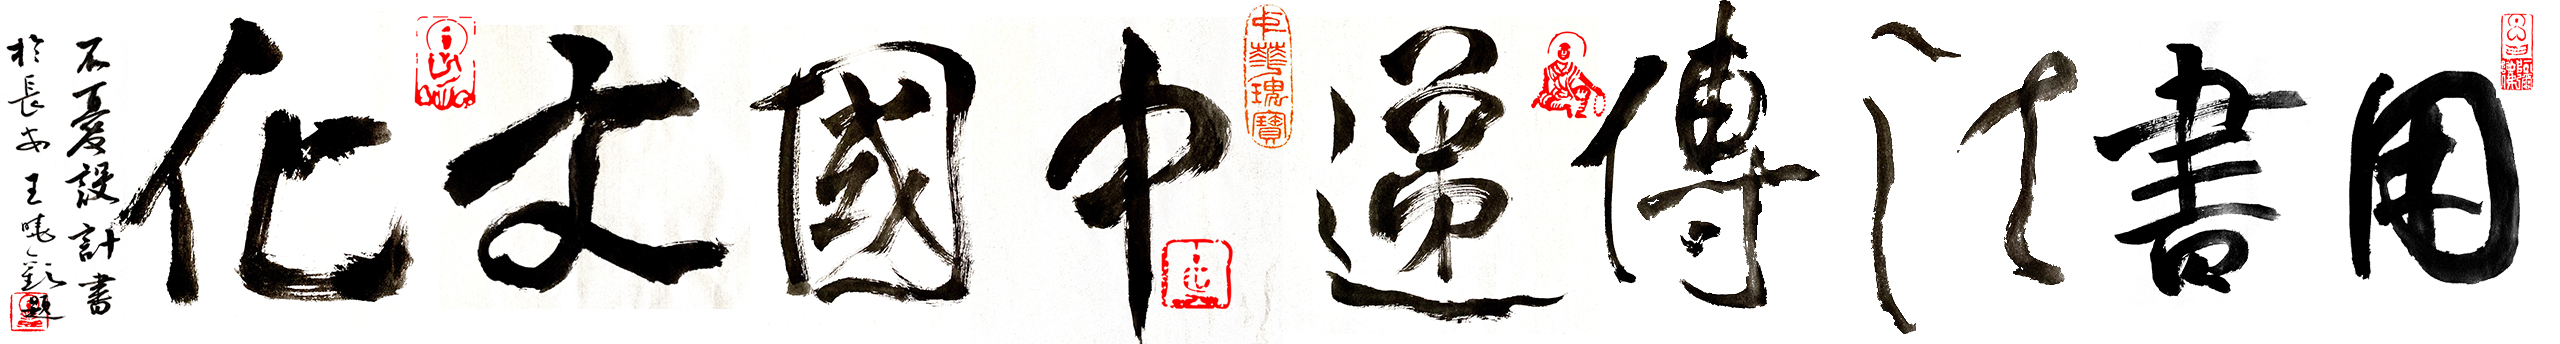 用書法傳遞中國文化
石憂設計書
於長安王曉毅題
中華瑰寶